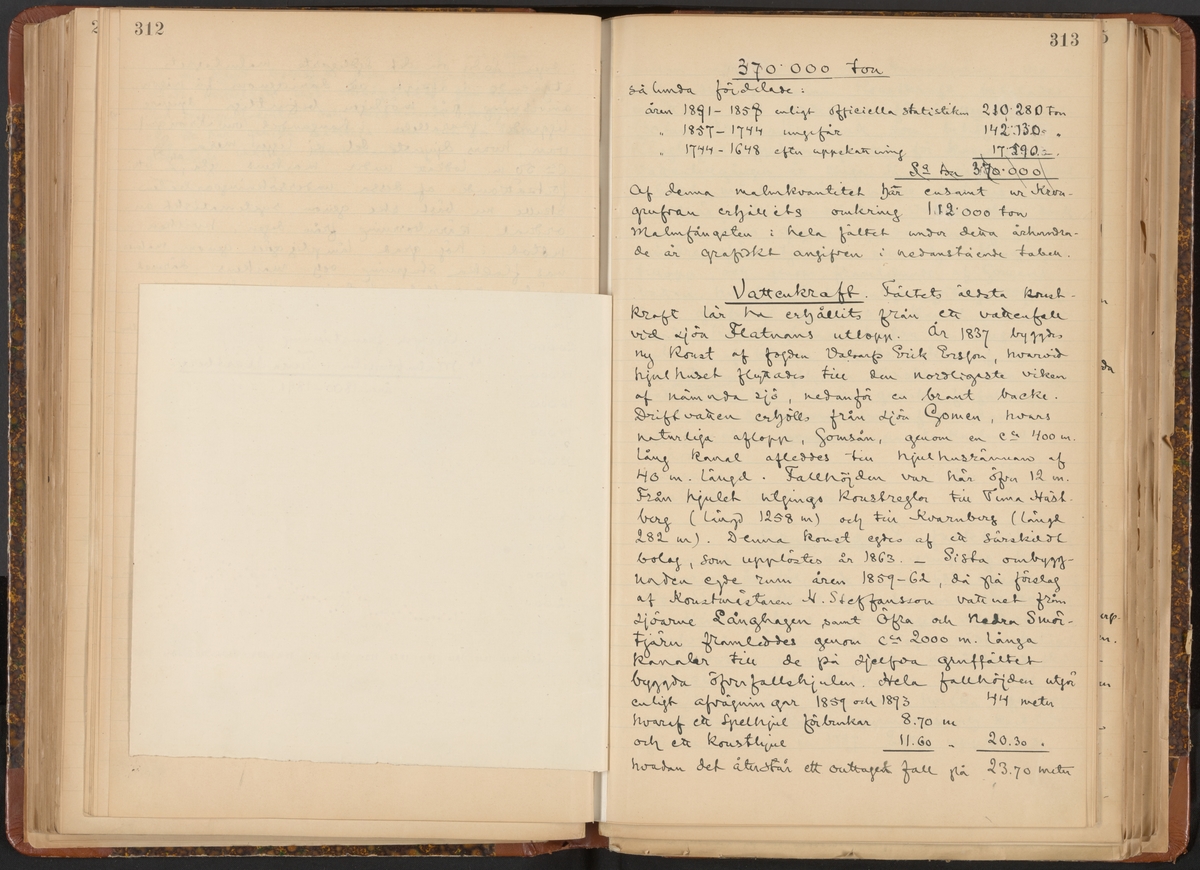 312
313
370.000 ton
sålunda fördelade:
åren 1891–1857 enligt officiella statistiken 210.280 ton
„ 1857–1744 ungefär 142.130.- „
„ 1744–1648 efter uppskattning 17.590.- „
S:a ton 370.000
Af denna malmkvantitet har ensamt ur Kron-
grufvan erhållits omkring 112.000 ton
Malmfångsten i hela fältet under detta århundra-
de är grafiskt angifven i nedanstående tabell.
Vattenkraft. Fältets äldsta konst-
kraft lär ha erhållits från ett vattenfall
vid sjön Flatnans utlopp. År 1837 byggdes
ny konst af fogden Erik Ersson, hvarvid
hjulhuset flyttades till den nordligaste viken
af nämnda sjö, nedanför en brant backe.
Driftvatten erhölls från sjön Gomen, hvars
naturliga aflopp, Gomsån, genom en c:a 400 m.
lång kanal afleddes till hjulhusrännan af
40 m. längd. Fallhöjden var här öfver 12 m.
Från hjulet utgingo konstreglor till Timanshöst-
berg (längd 1258 m) och till Kvarnberg (längd
282 m). Denna konst egdes af ett särskildt
bolag, som upplöstes år 1863. – Sista ombygg-
naden egde rum åren 1859–62, då på förslag
af Konstmästaren H. Steffansson vattnet från
sjöarne Långhagen samt Öfra och Nedra Smör-
tjärn framleddes genom c:a 2000 m. långa
kanaler till de på sjelfva gruffältet
byggda öfverfallshjulen. Hela fallhöjden utgör
enligt afvägningar 1859 och 1893 44 meter
hvaraf ett spelhjul förbrukar 8.70 m
och ett konsthjul 11.60 „ 20.30 „
hvadan det återstår ett outtaget fall på 23.70 meter